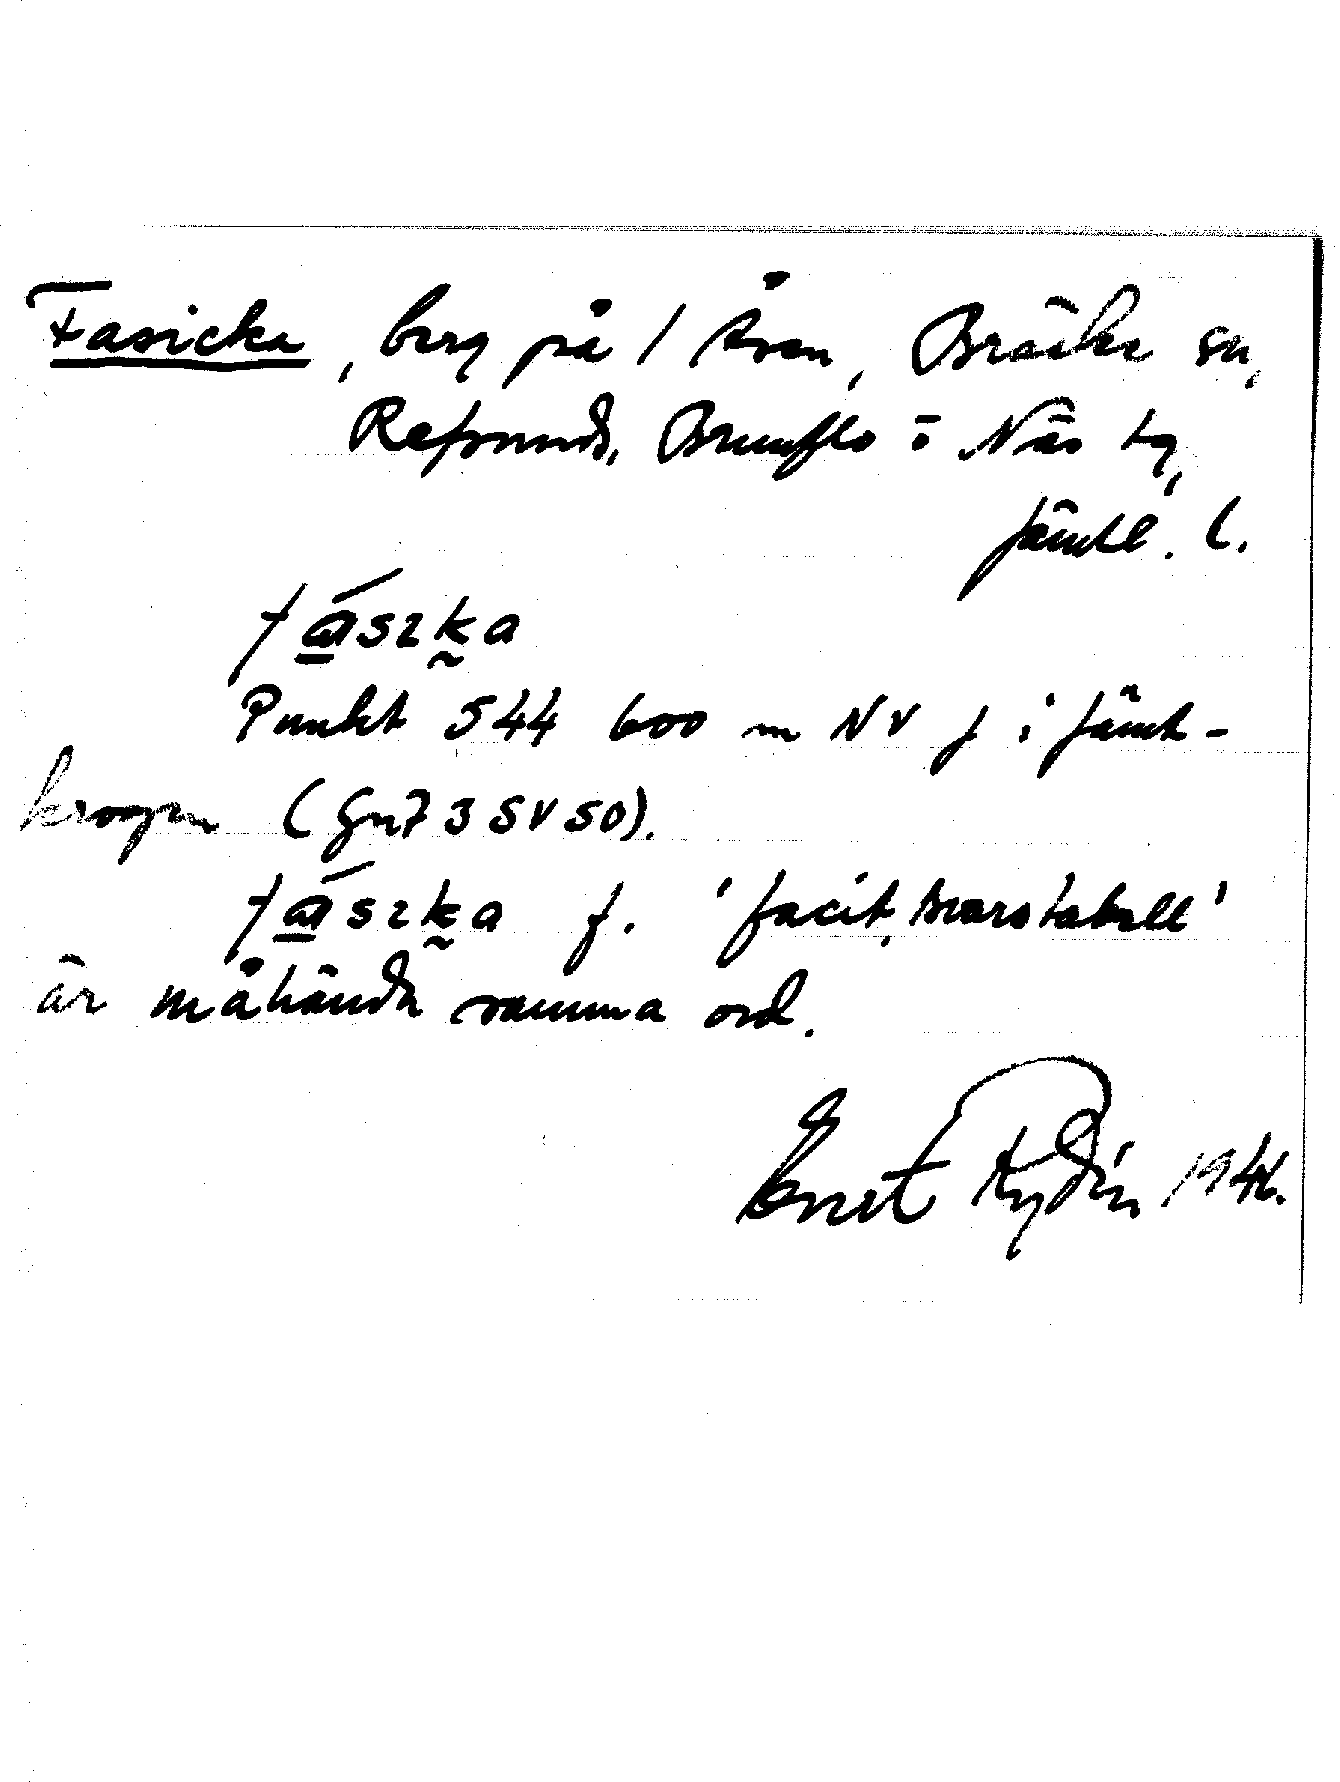 Fasicka, berg på / Åsen, Bräcke sn,
Refsunds, Brunflo o Näs tg,
Jämtl. l.
fa̲szk̰a
Punkt 544 600 m NV f i Jämt-
krogen (Gn73 SV SO).
fa̲szk̰a f. 'facit, svarstabell'
är måhända samma ord.
Ernst Rydin 1946.